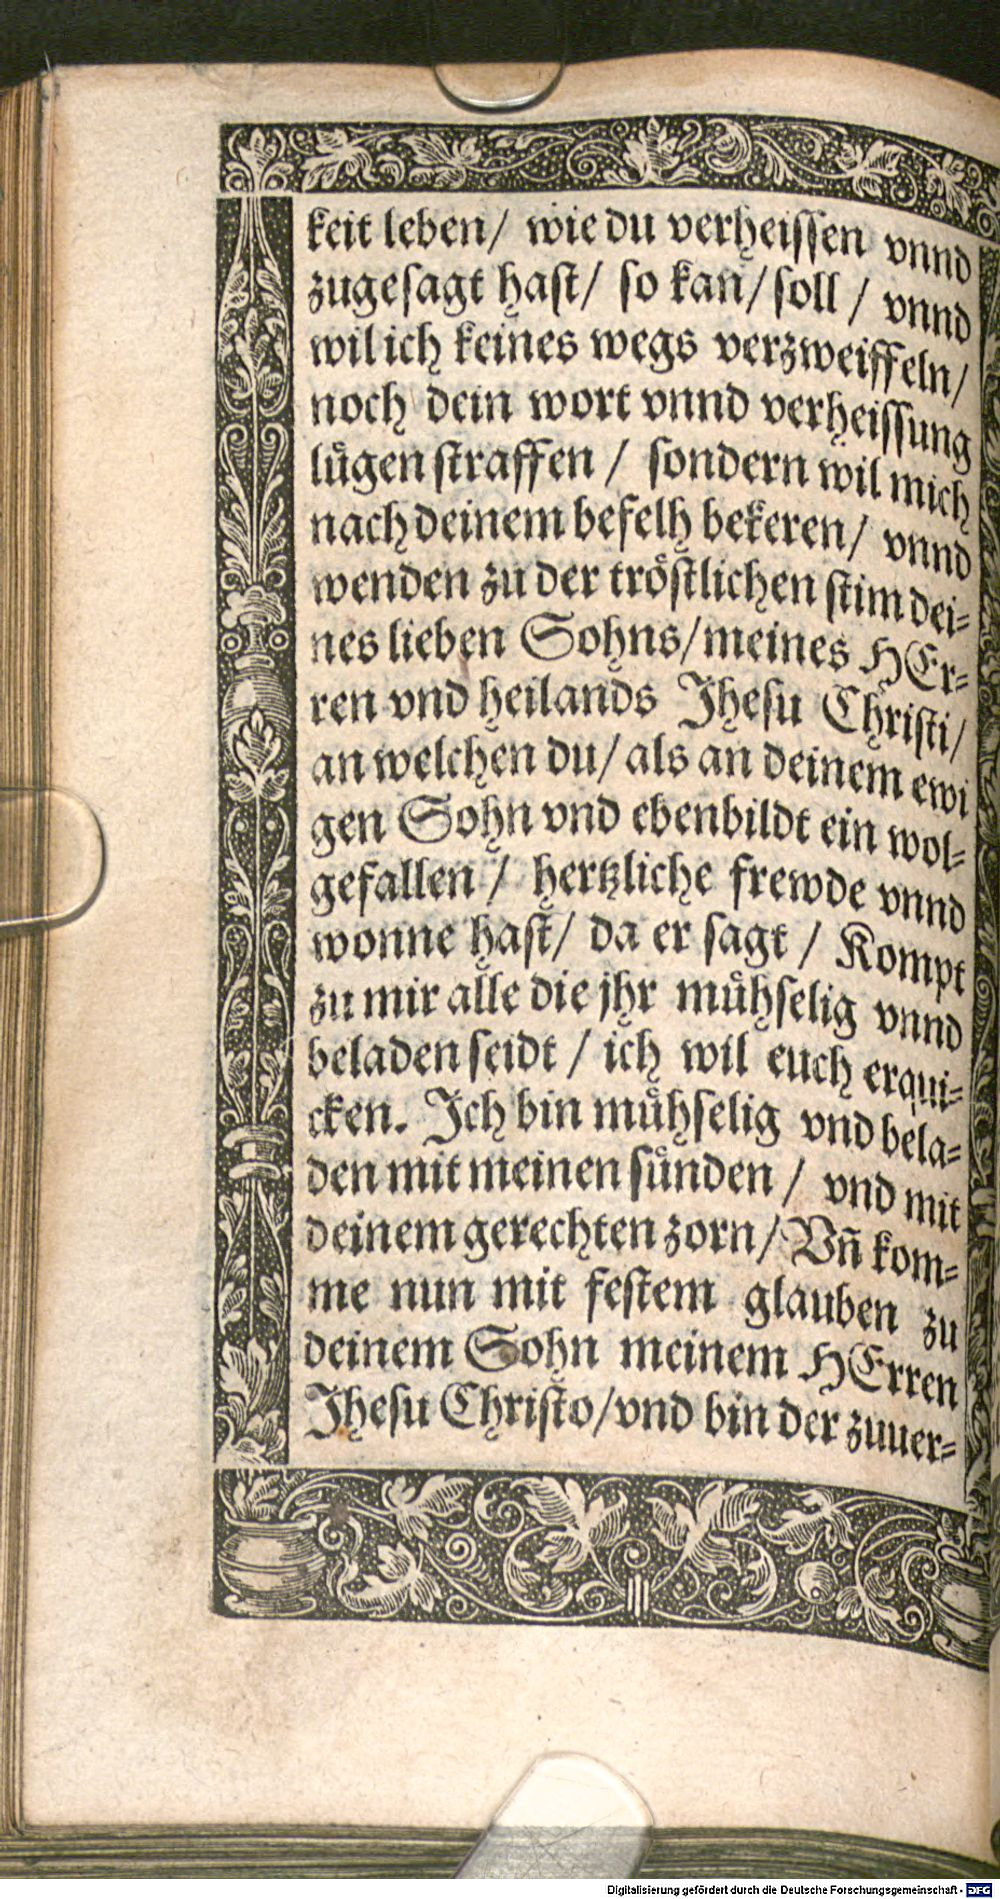 keit leben/ wie du verheissen vnnd
zugesagt hast/ so kan/ soll / vnnd
wil ich keines wegs verzweiffeln/
noch dein wort vnnd verheissung
luͤgen straffen / sondern wil mich
nach deinem befelh bekeren/ vnnd
wenden zu der troͤstlichen stim dei=
nes lieben Sohns/ meines HEr=
ren vnd heilands Jhesu Christi/
an welchen du/ als an deinem ewi
gen Sohn vnd ebenbildt ein wol=
gefallen / hertzliche frewde vnnd
wonne hast/ da er sagt / Kompt
zu mir alle die jhr muͤhselig vnnd
beladen seidt / ich wil euch erqui=
cken. Jch bin muͤhselig vnd bela=
den mit meinen suͤnden / vnd mit
deinem gerechten zorn/ Vñ kom=
me nun mit festem glauben zu
deinem Sohn meinem HErren
Jhesu Christo/ vnd bin der zuuer=
Digitalisierung gefördert durch die Deutsche Forschungsgemeinschaft - DFG